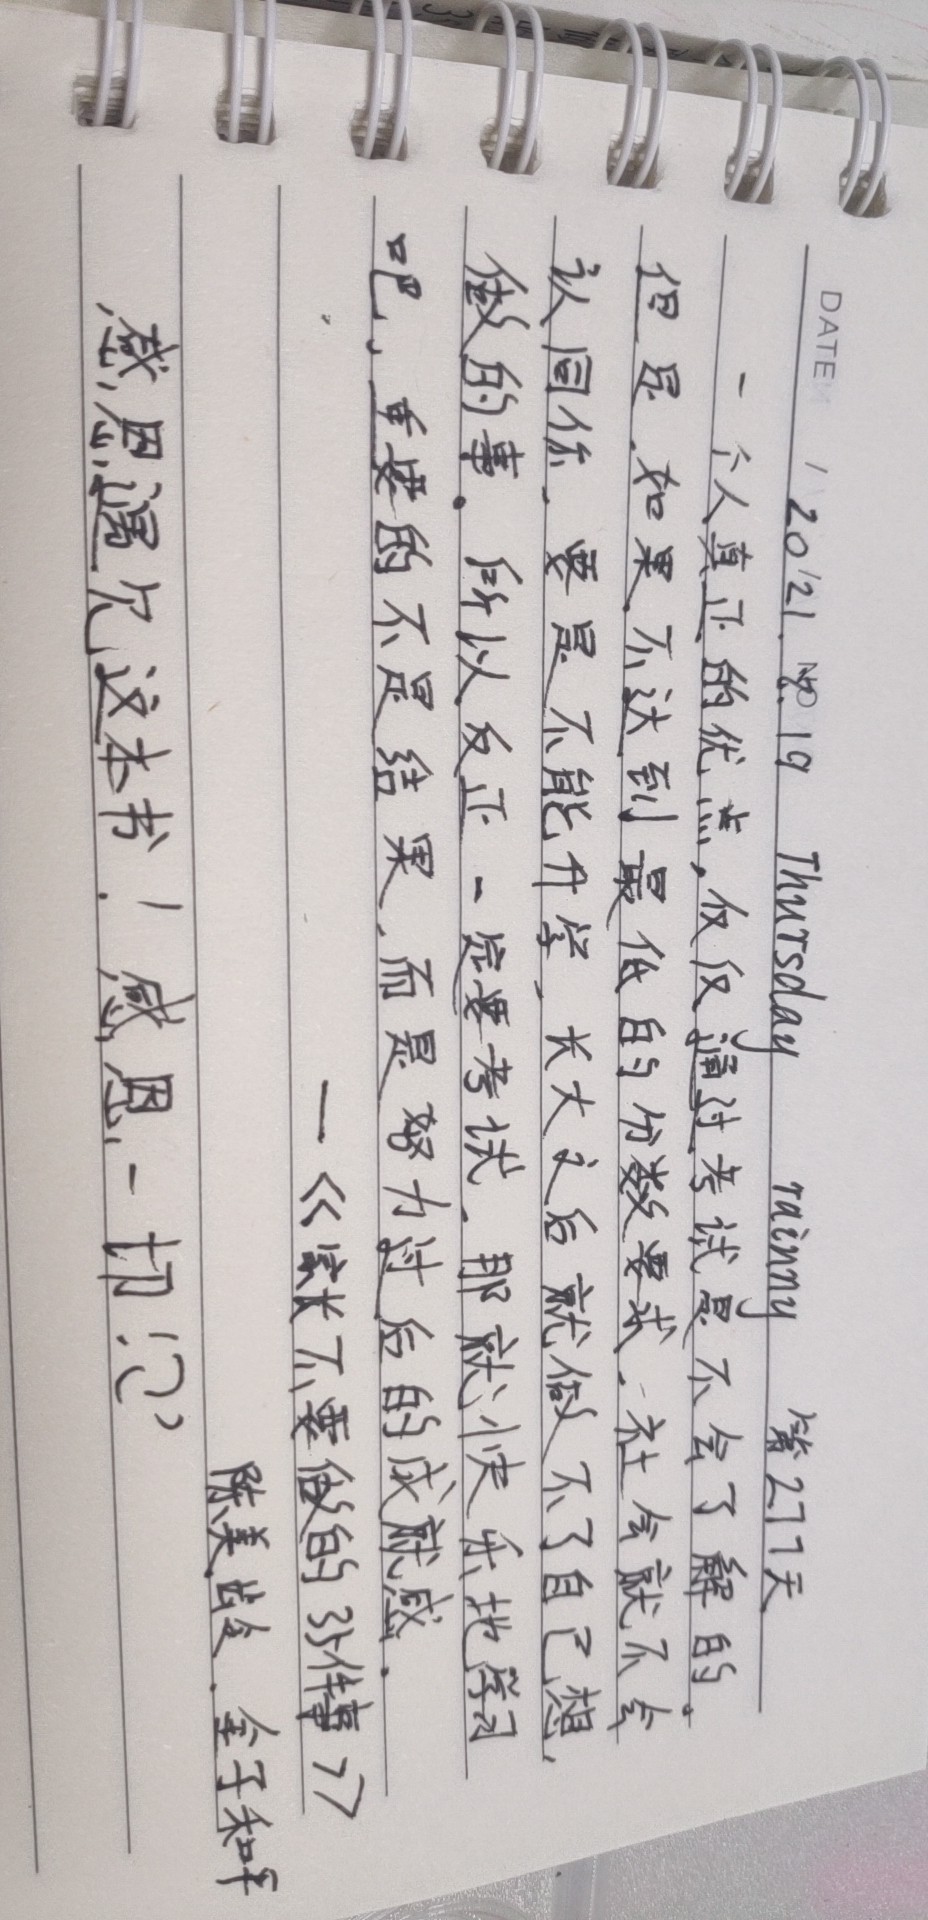 DATE / 2021. 8. 19 Thursday rainny 第277天
一个人真正的优点,仅仅通过考试是不会了解的。
但是.如果不达到最低的分数要求.社会就不会
认同你.要是不能升学、长大之后就做不了自己想
做的事。所以反正一定要考试.那就快乐地学习
吧、重要的不是结果.而是努力过后的成就感.
—《家长不要做的35件事》
陈美龄.金子和平
感恩遇见这本书.!感恩一切!